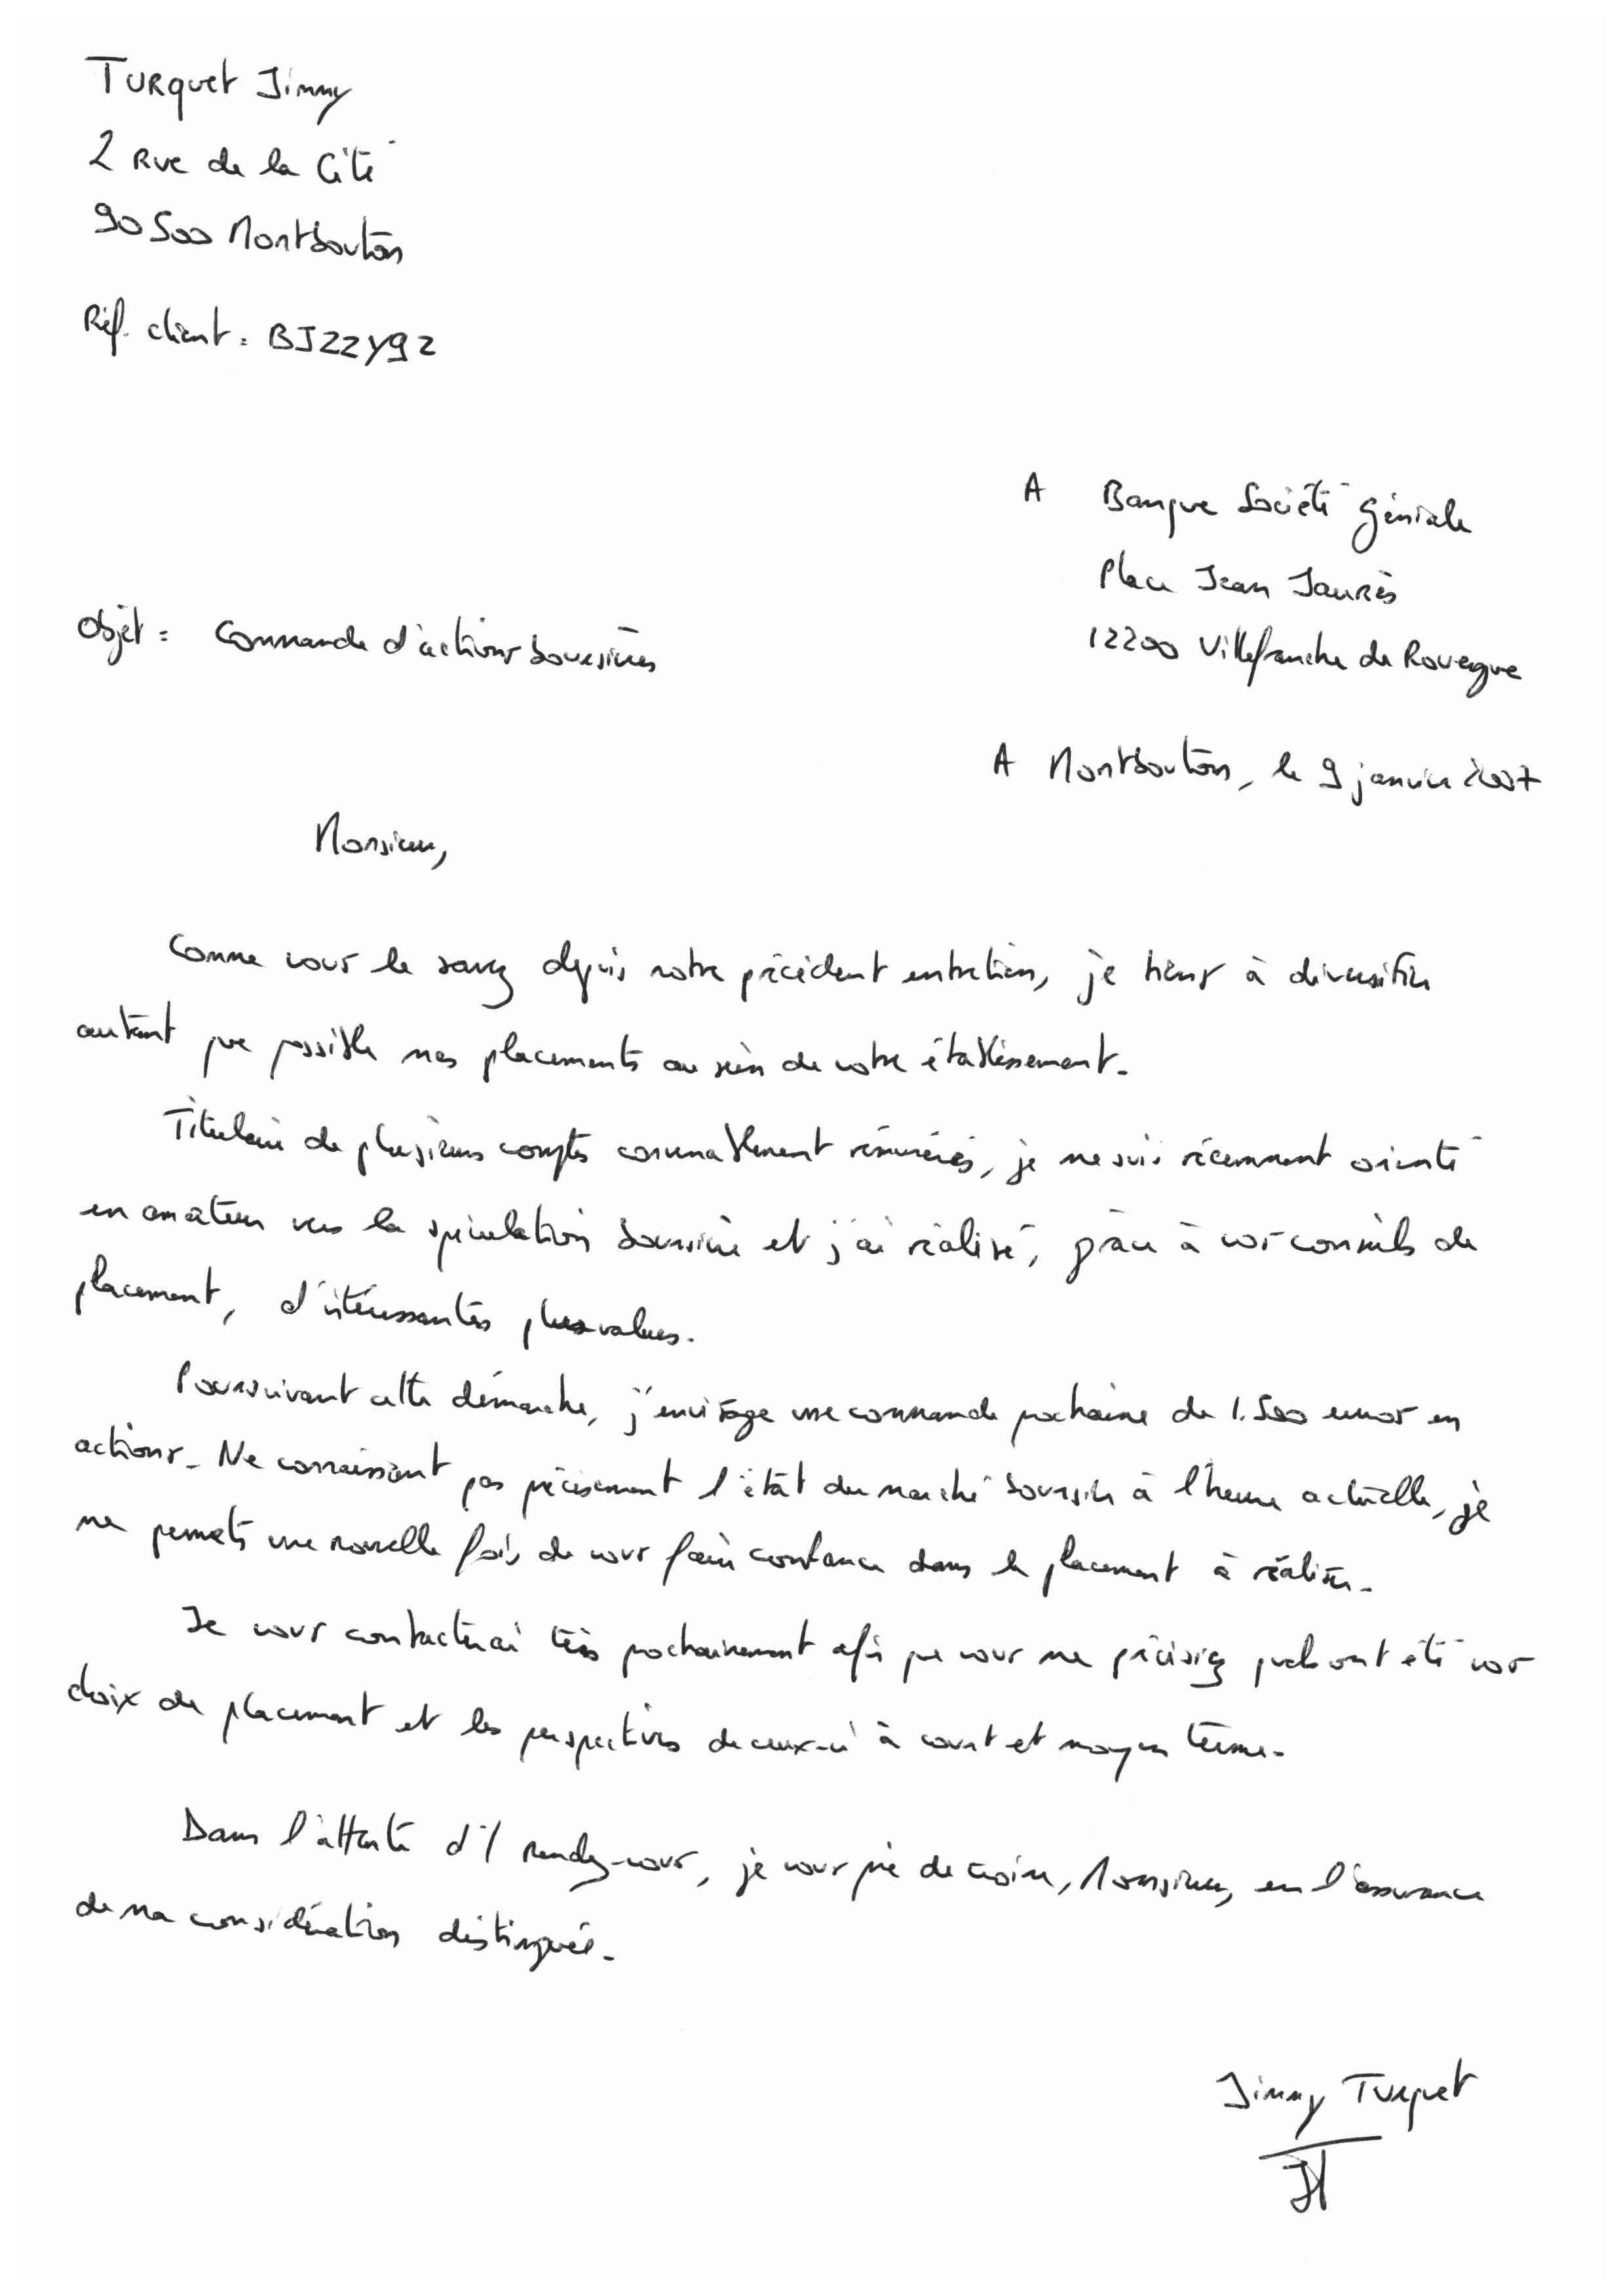 Turquet Jimmy
2 Rue de la Cité
90500 Montbouton
Réf. client : BJZZY92
A Banque Société Géniale
Place Jean Jaurès
12200 Villefranche de Rouergue
Objet : Commande d'actions boursières
A Montbouton, le 9 janvier 2007
Monsieur,
Comme vous le savez depuis notre précédent entretien, je tiens à diversifier
autant que possible mes placements au sein de votre établissement.
Titulaire de plusieurs comptes convenablement rémunérés, je me suis récemment orienté
en amateur vers la spéculation boursière et j'ai réalisé, grâce à vos conseils de
placement, d'intéressantes plus values.
Poursuivant cette démarche, j'envisage une commande prochaine de 1.500 euros en
actions. Ne connaissant pas précisement l'état du marché boursier à l'heure actuelle, je
me permets une nouvelle fois de vous faire confiance dans le placement à réaliser.
Je vous contacterai très prochainement afin que vous me précisiez quels ont été vos
choix de placement et les perspectives de ceux-ci à court et moyen terme.
Dans l'attente d'1 rendez-vous, je vous prie de croire, Monsieur, en l'assurance
de ma considération distinguée.
Jimmy Turquet